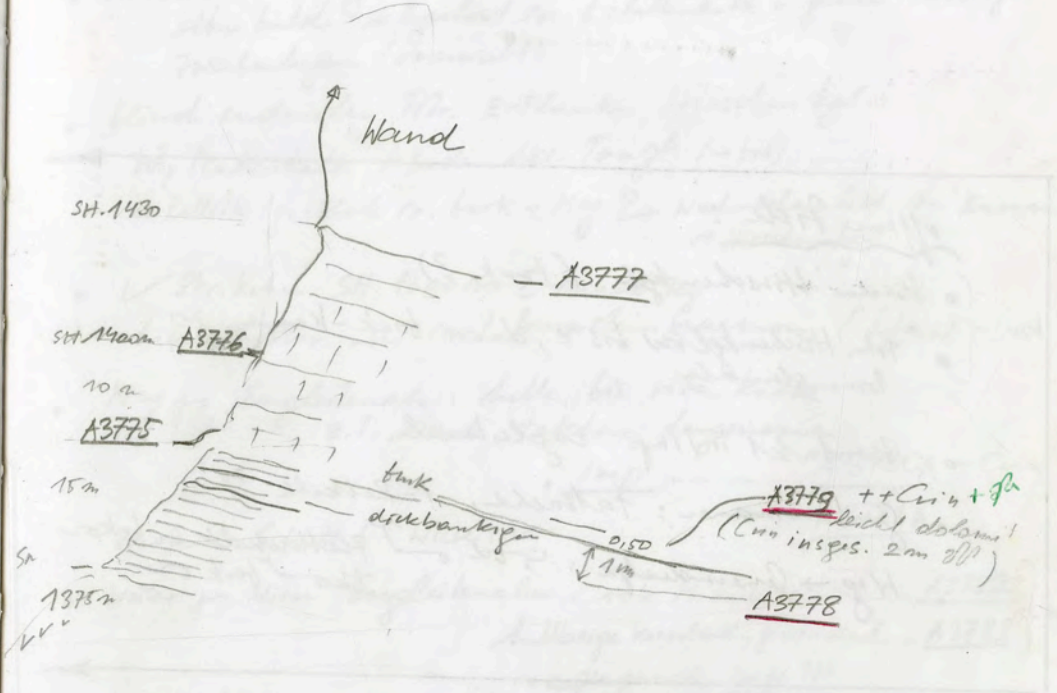 Wand
SH. 1430
A3777
SH. 1400m A3776
10 m
A3775
15 m
dickbankiger
A3779 ++Crin +
leicht dolomit
(Crin insges. 2m
0,50
1m
A3778
1375m